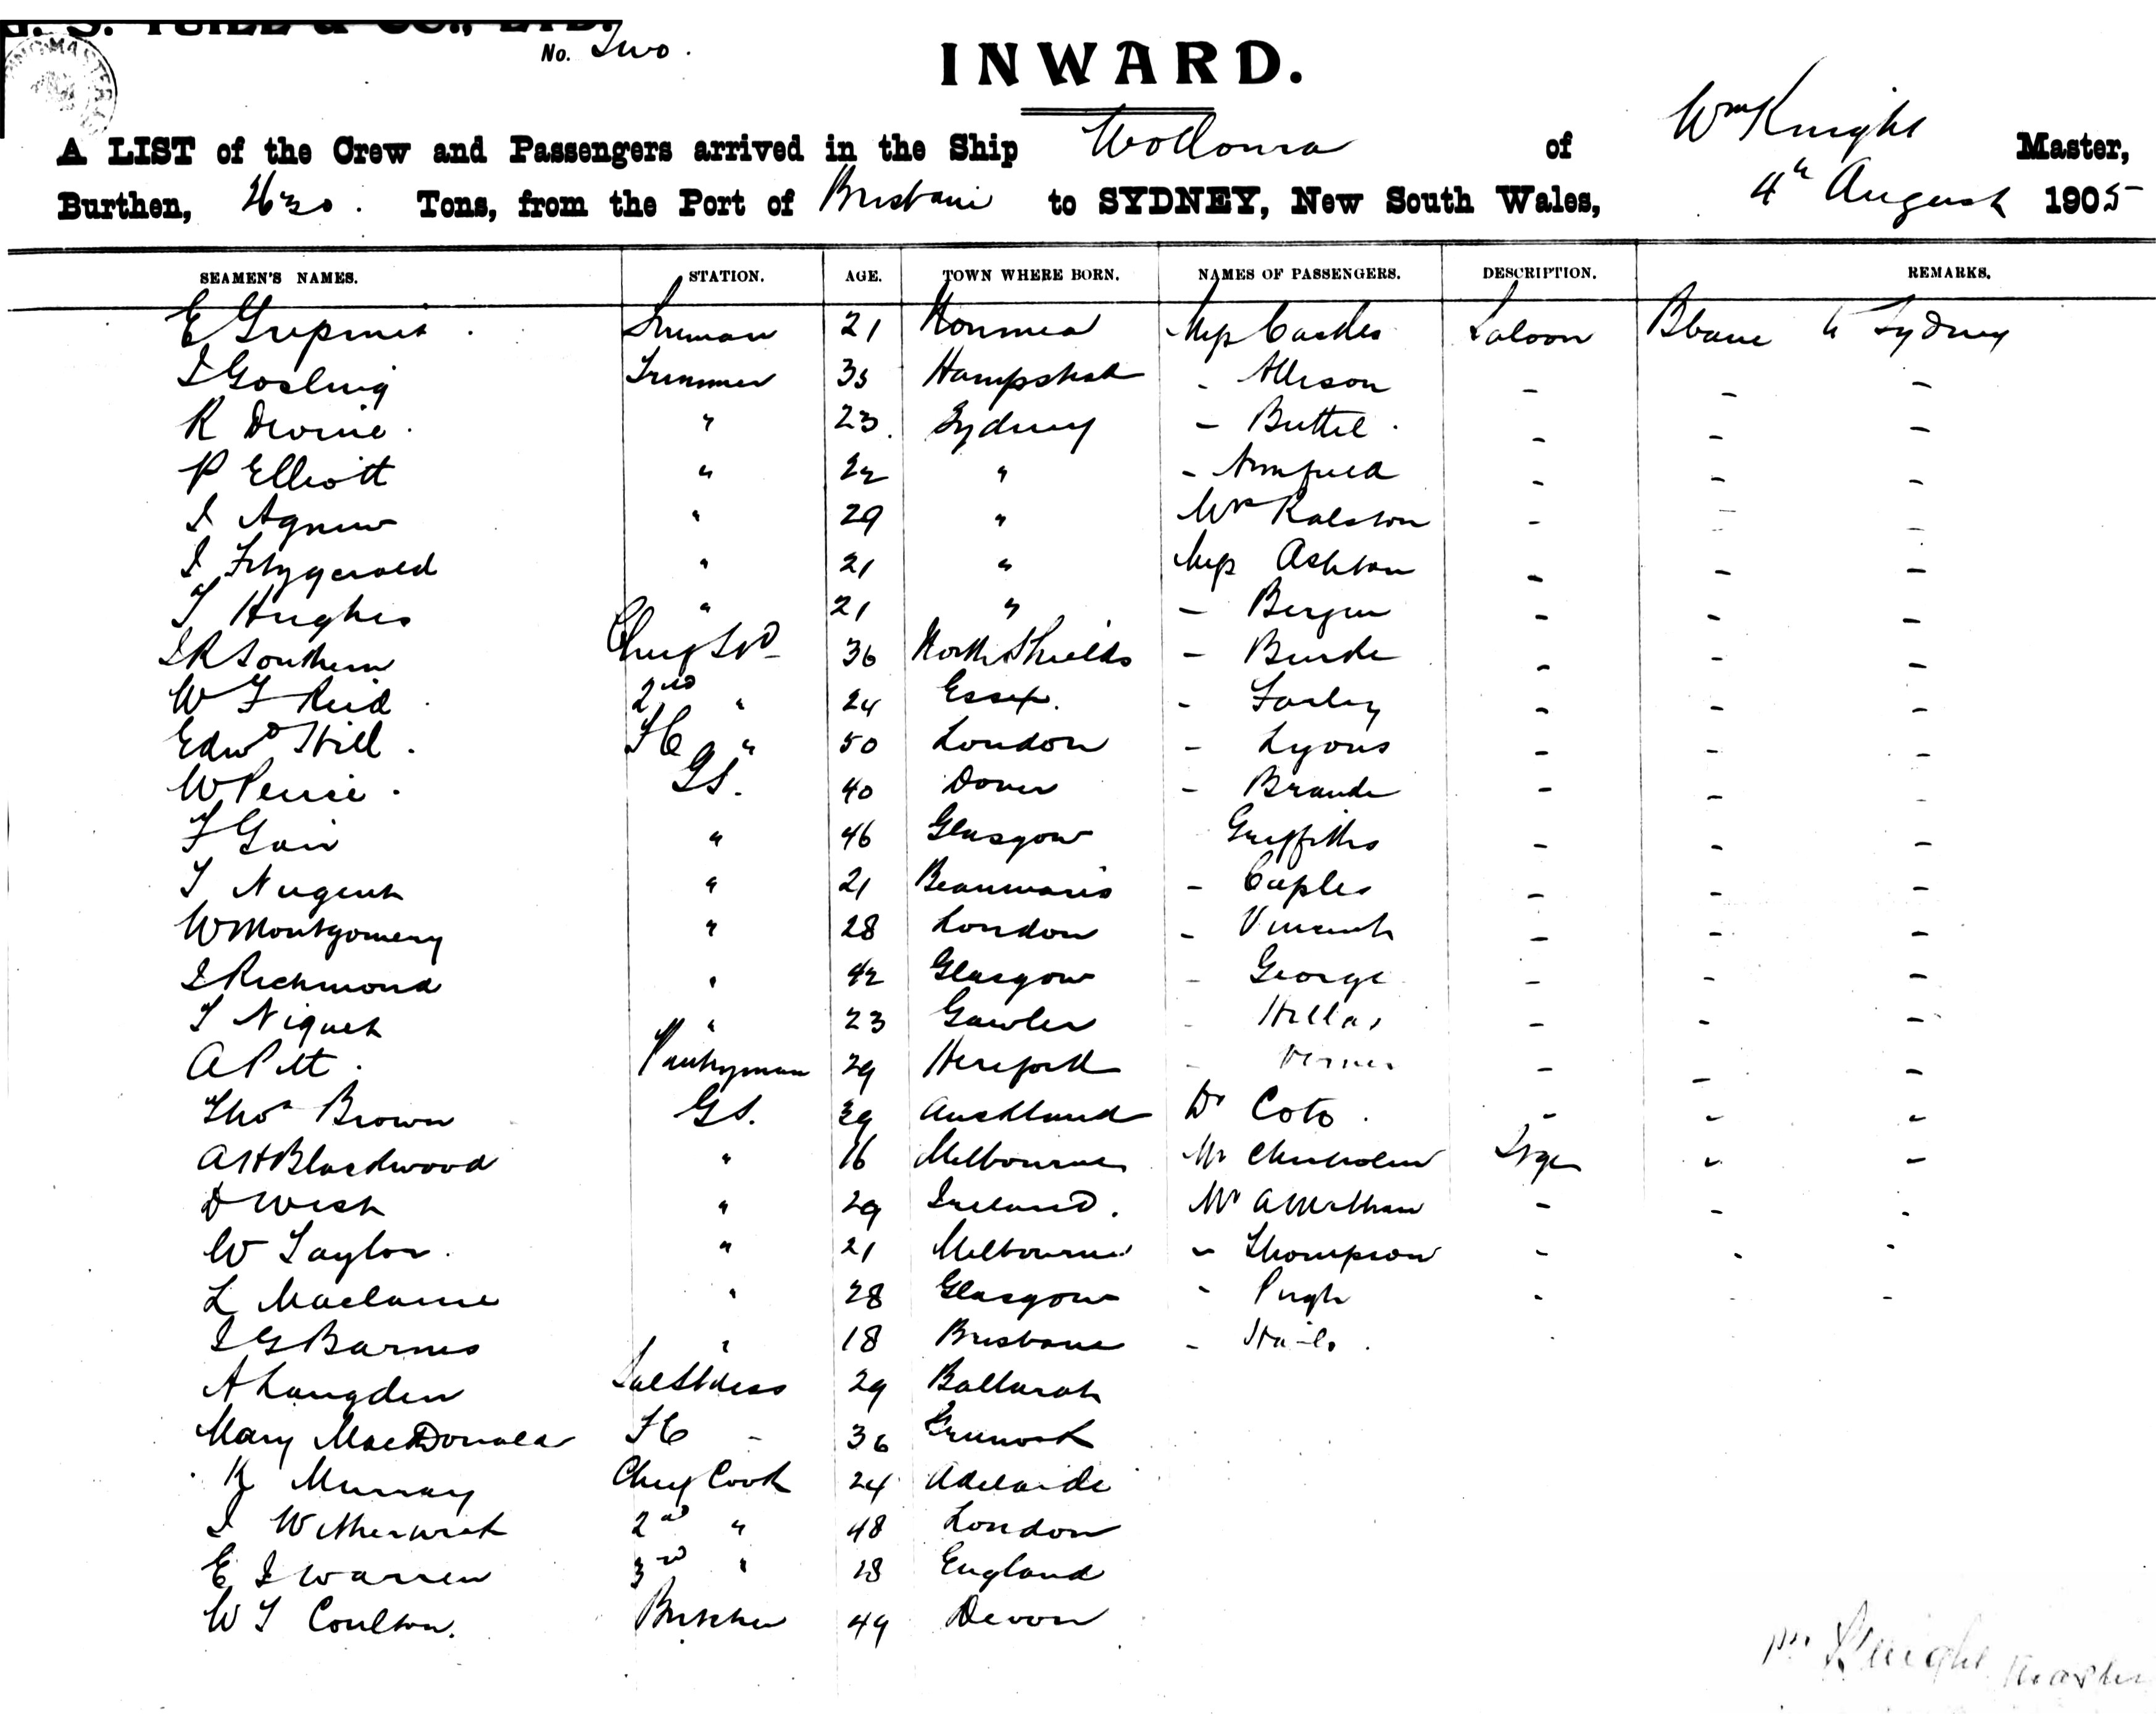 J. S. YUILL & CO., LTD.
No. Two.
INWARD.
A LIST of the Crew and Passengers arrived in the Ship Wollowra of Wm Knight Master,
Burthen, Tons, from the Port of Brisbane to SYDNEY, New South Wales, 4th August 1905
SEAMEN'S NAMES. STATION. AGE. TOWN WHERE BORN. NAMES OF PASSENGERS. DESCRIPTION. REMARKS.
E Fireman 21 Miss Castles Saloon Bbane to Sydney
J Gosling Trimmer 35 Hampstead - Allison - - -
R Devine " 23 Sydney - Buttel - - -
P Elliott " 22 " - Armfield - - -
J Agnew " 29 " Mrs Ralston - - -
J Fitzgerald " 21 " Miss Ashton - - -
T Hughes " 21 " - Bergin - - -
J R Southern Chief Std 36 North Shields - Burke - - -
W F Reid 2nd " 24 Essex. - Farley - - -
Edwd Hill FC " 50 London - Lyons - - -
W GS. 40 Dover - Braude - - -
F Gair " 46 Glasgow Griffiths - - -
T Nugent " 21 Beaumaris - Caples - - -
W Montgomery " 28 London - Vincent - - -
J Richmond " 42 Glasgow - George - - -
T Niquet " 23 Gawler - - - -
A Pitt. Pantryman 29 Hereford - Verner - - -
Thos Brown GS. 39 Auckland Dr Coto - - -
A H Blackwood " 16 Melbourne Mr Chisholm Stge - -
D West " 29 Ireland. Mr - - -
W Taylor. " 21 Melbourne - Thompson - - -
L Maclaine " 28 Glasgow - Pugh - - -
J G Barnes " 18 Brisbane -
A Langden Sal Stdess 29 Ballarat
Mary MacDonald FC - 36 Greenock
K Murray Chief Cook 24 Adelaide
J 2nd " 48 London
E J Warren 3rd " 28 England
W J Coulton. Butcher 49 Devon
Wm Knight Master